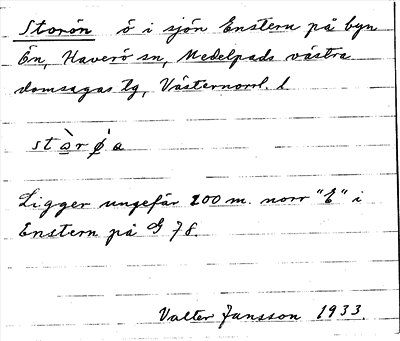 Storön ö i sjön Enstern på byn
Ön, Haverö sn, Medelpads västra
domsagas tg, Västernorrl. l
stὰrǿa
Ligger ungefär 200 m. norr "E" i
Enstern på G 78.
Valter Jansson 1933.